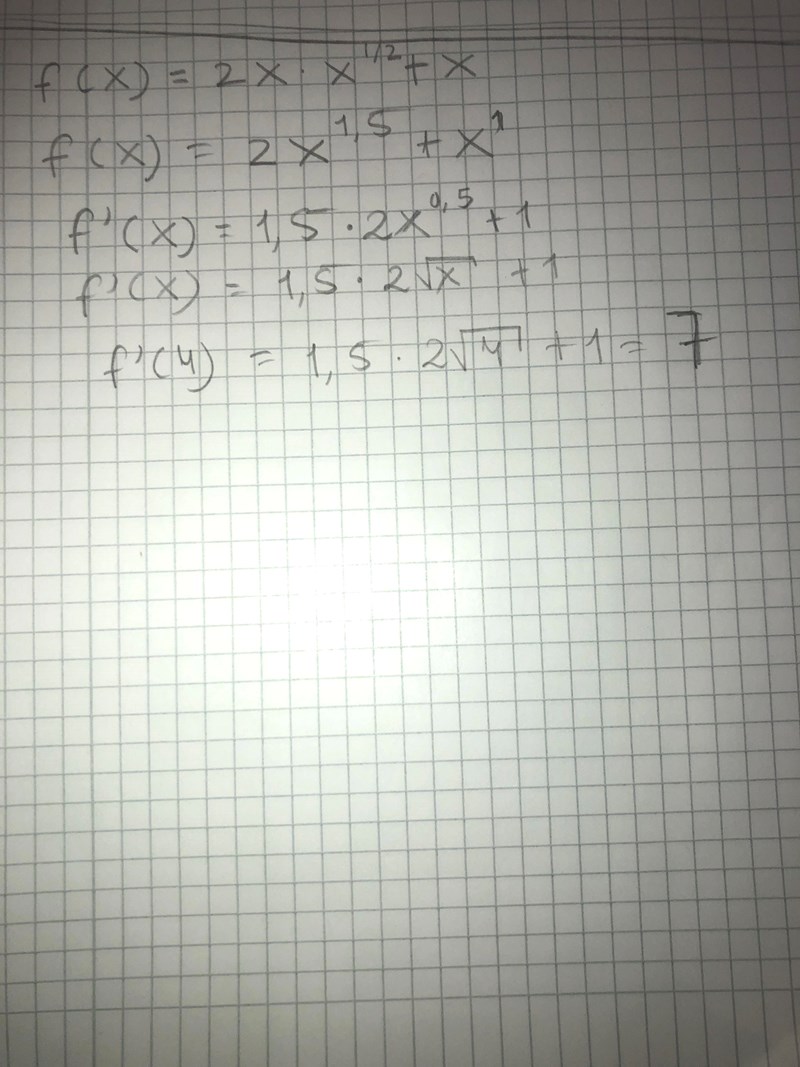 f(x) = 2x · x^1/2 + x
f(x) = 2x^1,5 + x^1
f'(x) = 1,5 · 2x^0,5 + 1
f'(x) = 1,5 · 2√x + 1
f'(4) = 1,5 · 2√4 + 1 = 7